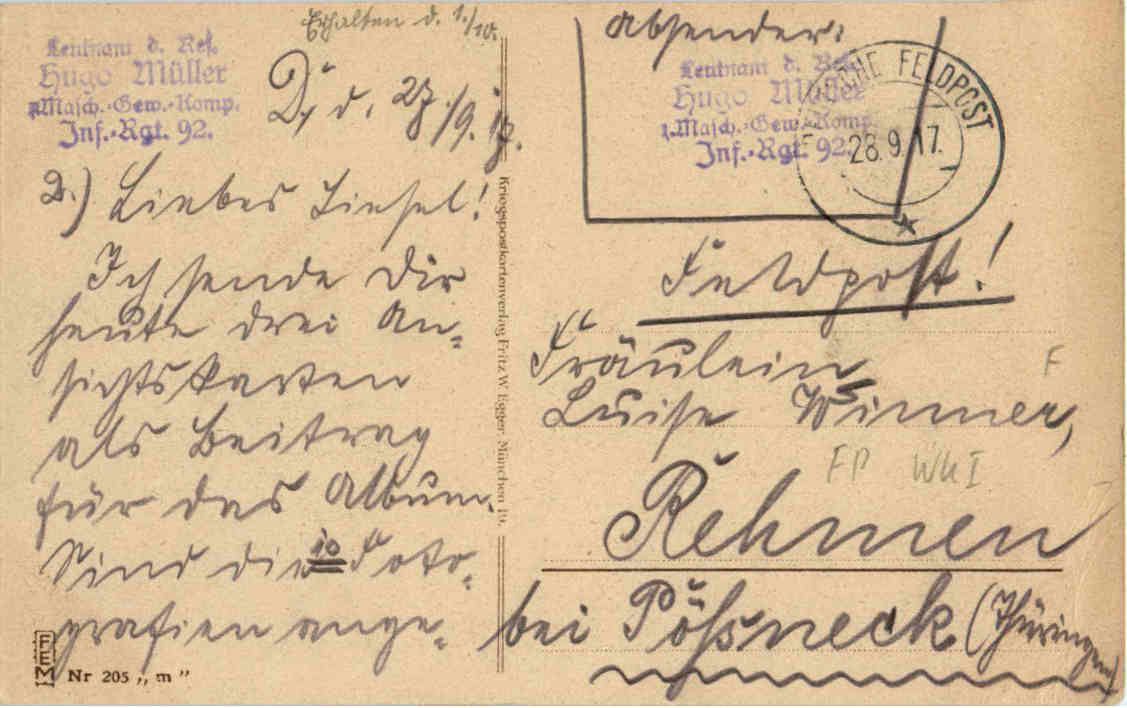 Erhalten d. 1./10.
Leutnant d. Res.
Hugo Müller
Masch.-Gew.-Komp.
Inf.-Rgt. 92.
O., d. 27./9. 17.
2.) Liebes Liesel!
Ich sende Dir
heute drei An-
sichtskarten
als Beitrag
für das Album.
Sind die 10 Foto-
grafien ange-
FEM
Nr 205 „ m "
Kriegspostkartenverlag Fritz W. Egger, München 19.
Absender:
Leutnant d. Res.
Hugo Müller
Masch.-Gew.-Komp.
Inf.-Rgt. 92.
FELDPOST
28.9.17.
Feldpost!
Fräulein
Luise Winner,
F
FP WKI
Rehmen
bei Pößneck (Thüringen)